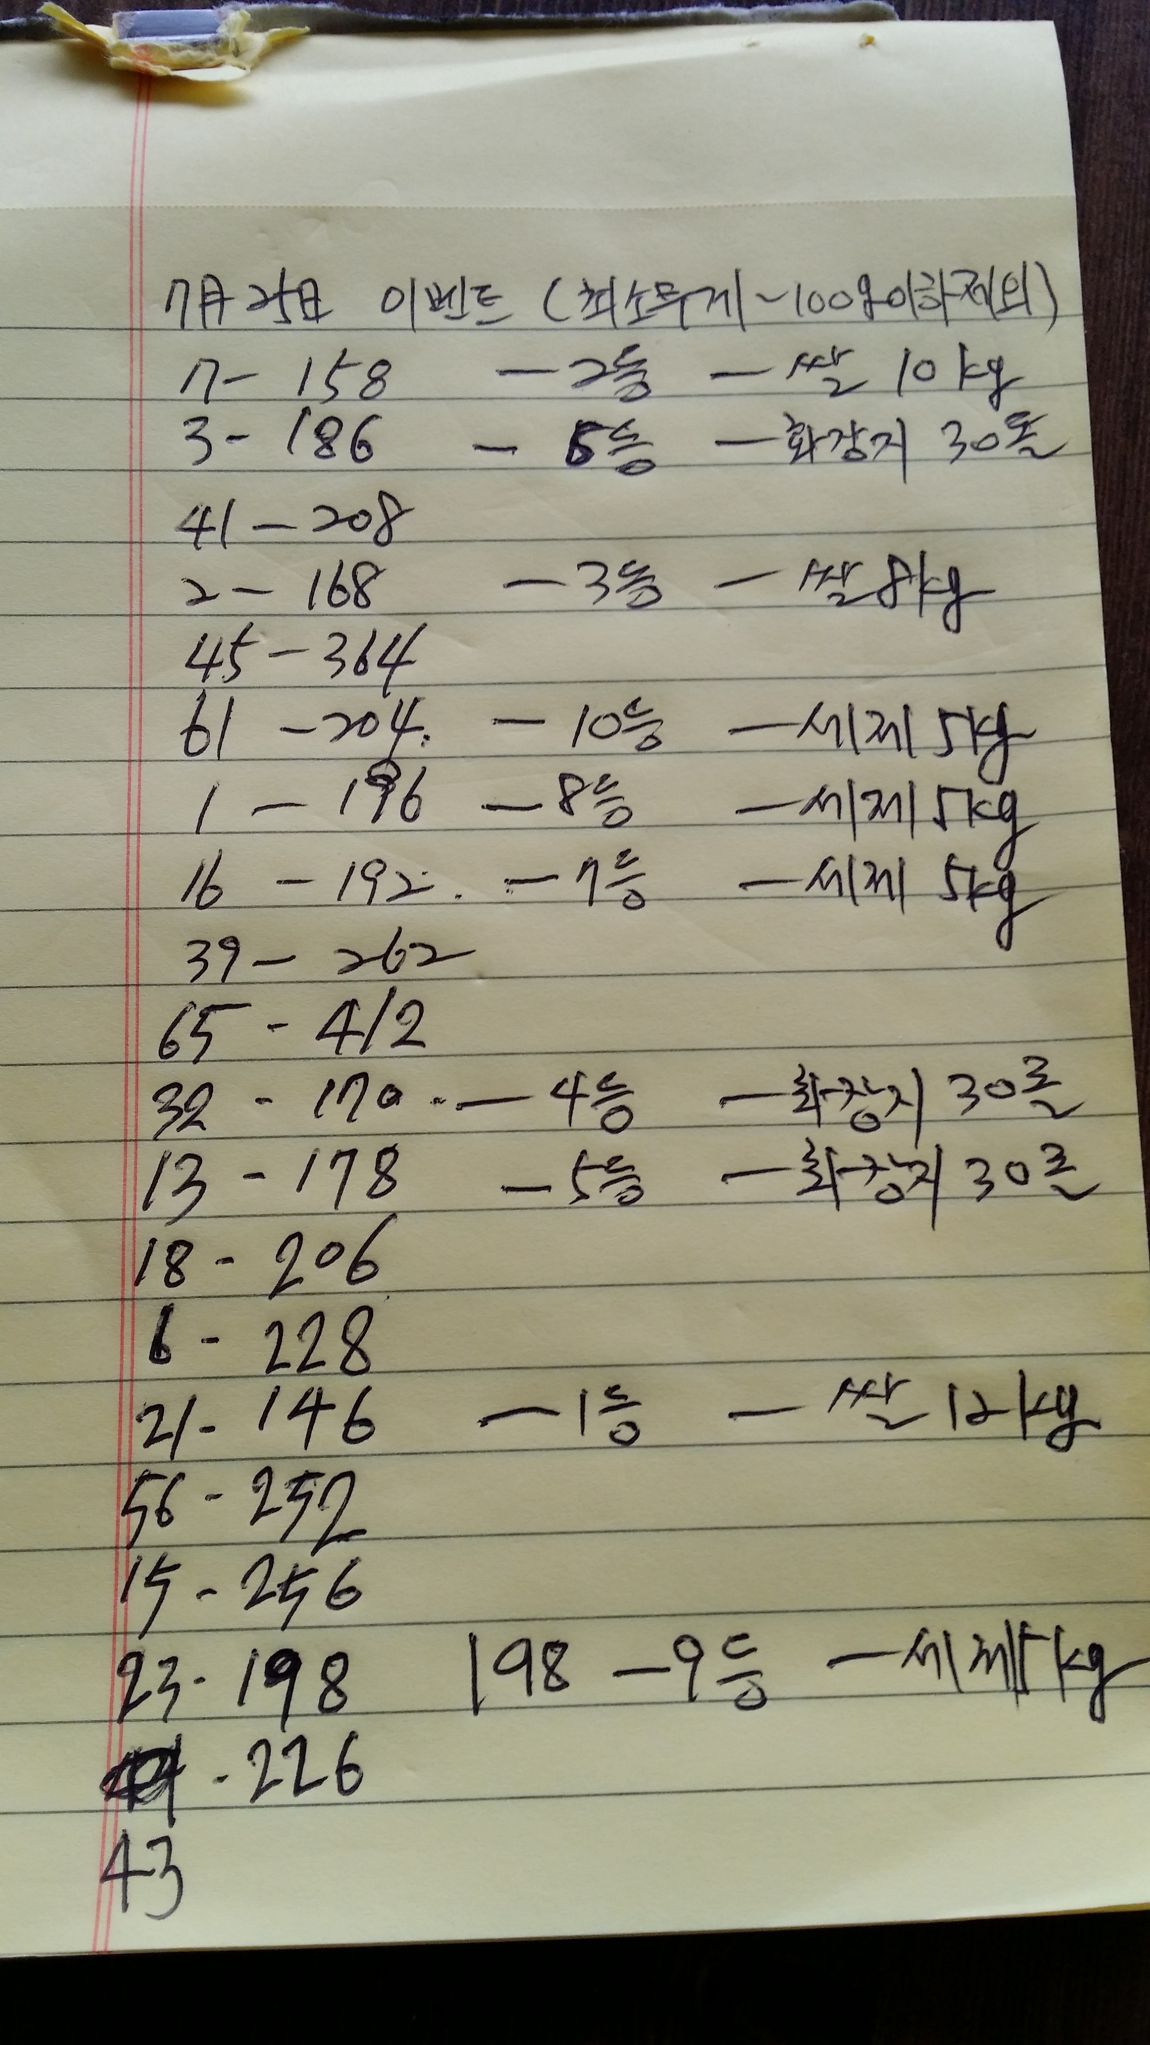 7月25日 이벤트 (최소무게 ~100g이하제외)
7- 158 - 2등 - 쌀 10kg
3- 186 - 6등 - 화장지 30롤
41 - 208
2 - 168 - 3등 - 쌀 8kg
45 - 364
61 - 204. - 10등 - 세제 5kg
1 - 196 - 8등 - 세제 5kg
16 - 192. - 7등 - 세제 5kg
39 - 262
65 - 412
32 - 170 - 4등 - 화장지 30롤
13 - 178 - 5등 - 화장지 30롤
18 - 206
6 - 228
21 - 146 - 1등 - 쌀 12kg
56 - 252
15 - 256
23 - 198 198 - 9등 - 세제 5kg
- 226
43